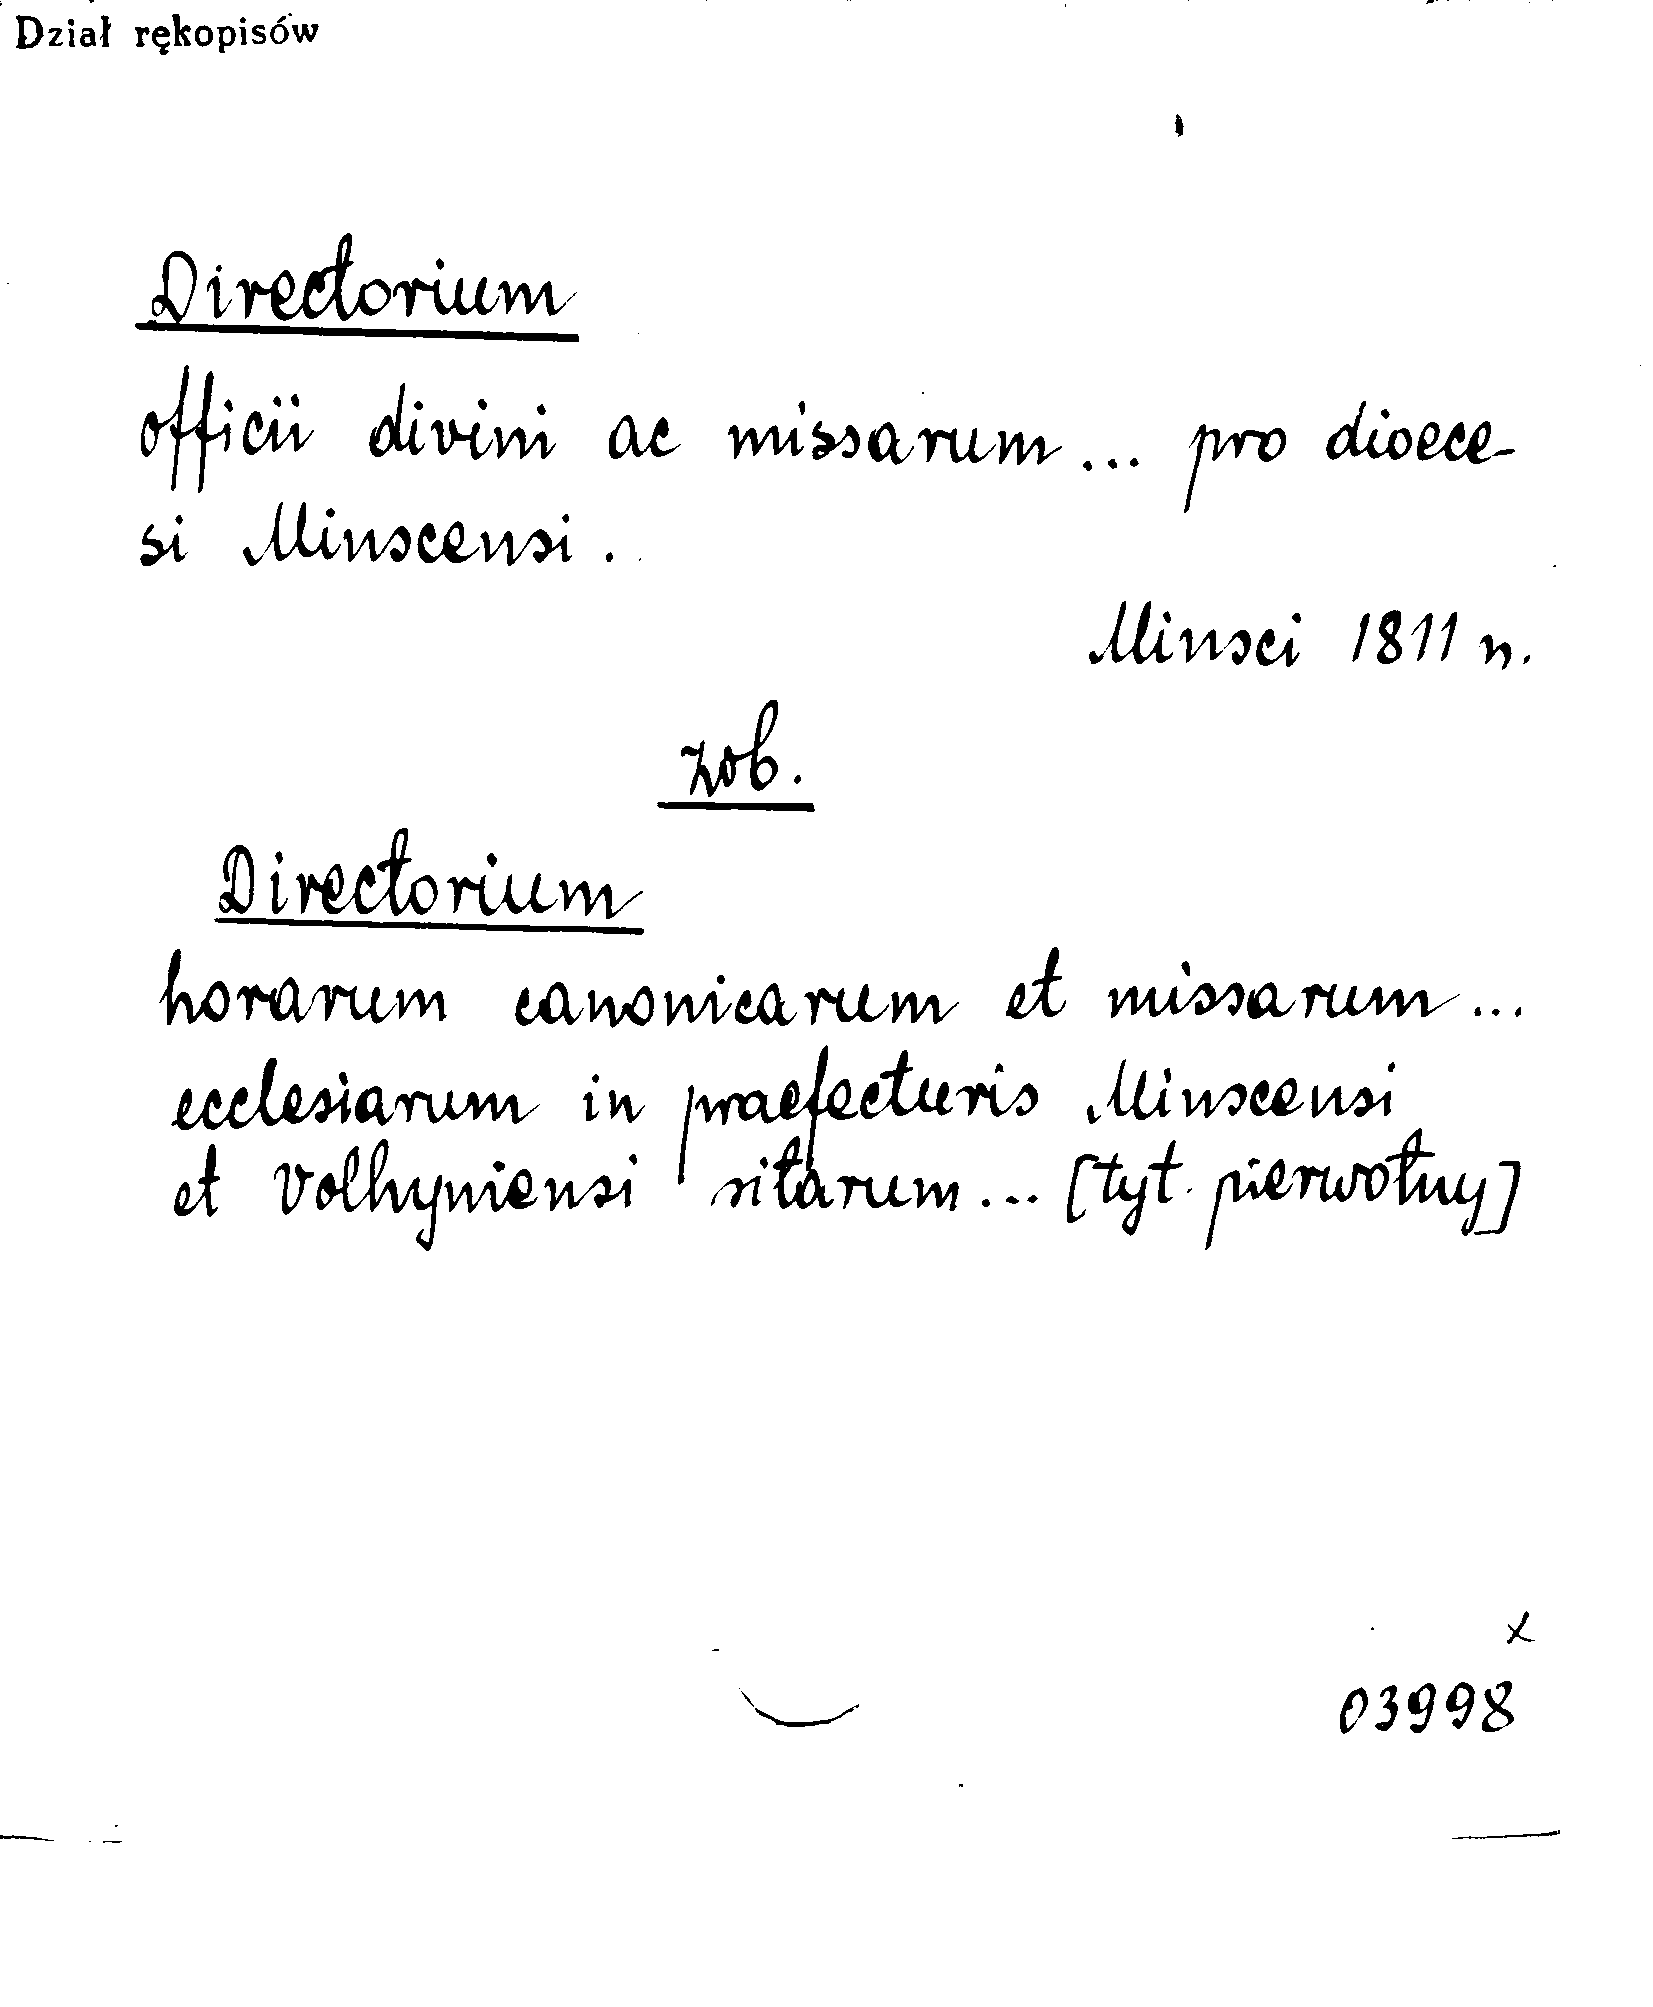 Dział rękopisów
Directorium
officii divini ac missarum... pro dioece-
si Minscensi.
Minsci 1811 n.
zob.
Directorium
horarum canonicarum et missarum...
ecclesiarum in praefecturis Minscensi
et Volhyniensi sitarum... [tyt. pierwotny]
x
03998